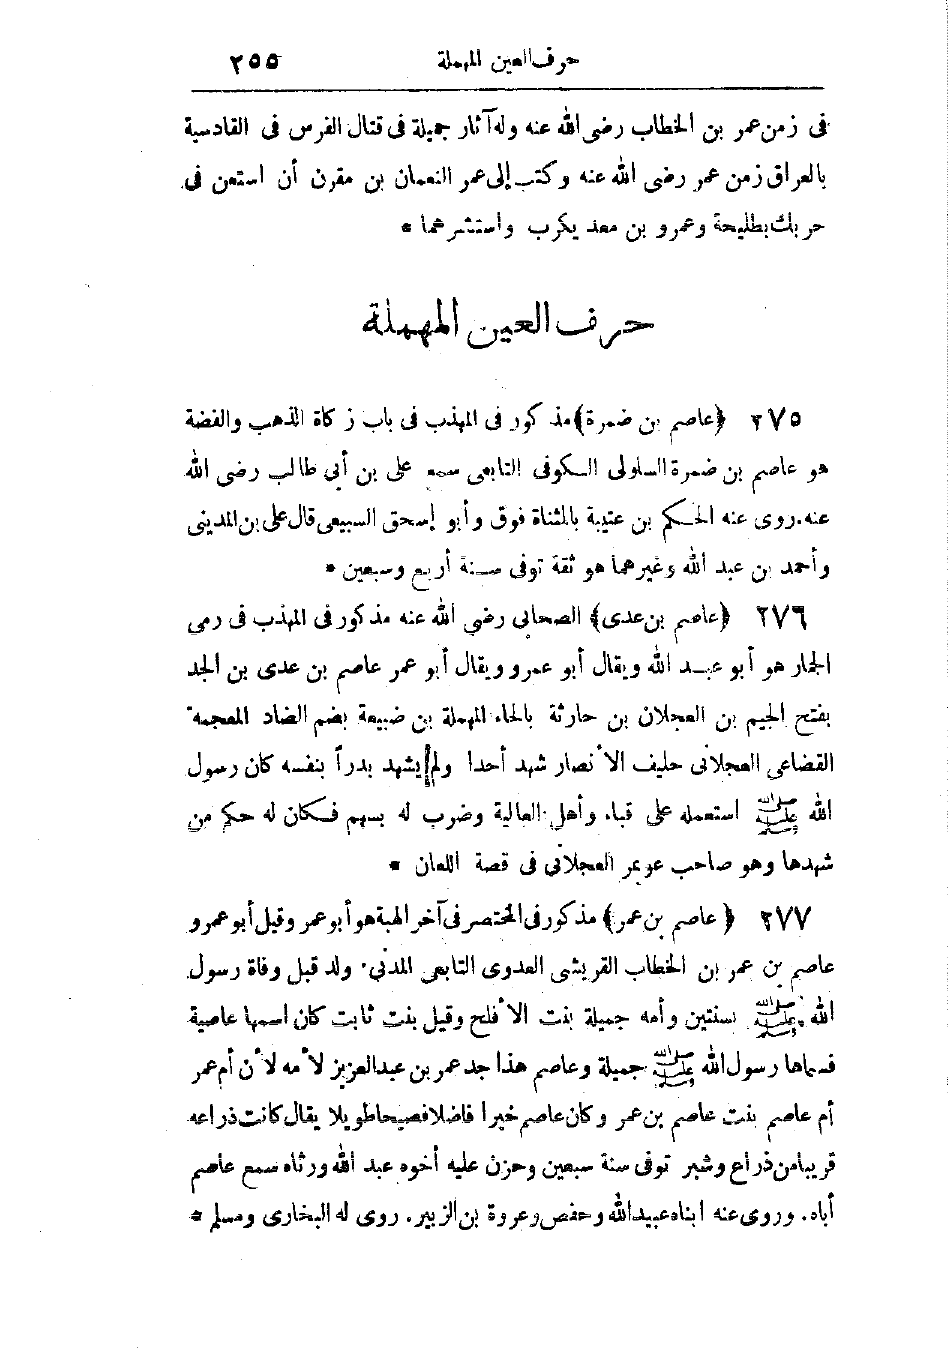 حرف العين المهملة ٢٥٥
فى زمن عمر بن الخطاب رضى الله عنه وله آثار جميلة فى قتال الفرس فى القادسية
بالعراق زمن عمر رضى الله عنه وكتب إلى عمر النعمان بن مقرن أن استعن فى
حربك بطليحة وعمرو بن معد يكرب واستشرهما *
حرف العين المهملة
٢٧٥ (عاصم بن ضمرة) مذكور فى المهذب فى باب زكاة الذهب والفضة
هو عاصم بن ضمرة السلولى الكوفى التابعى سمع على بن أبى طالب رضى الله
عنه. روى عنه الحكم بن عتيبة بالمثناة فوق وأبو إسحق السبيعى قال على بن المدينى
وأحمد بن عبد الله وغيرهما هو ثقة توفى سنة أربع وسبعين *
٢٧٦ (عاصم بن عدى) الصحابى رضى الله عنه مذكور فى المهذب فى رمى
الجمار هو أبو عبد الله ويقال أبو عمرو ويقال أبو عمر عاصم بن عدى بن الجد
بفتح الجيم بن العجلان بن حارثة بالحاء المهملة بن ضبيعة بضم الضاد المعجمة
القضاعى العجلانى حليف الأنصار شهد أحدا ولم يشهد بدراً بنفسه كان رسول
الله ﷺ استعمله على قباء وأهل العالية وضرب له بسهم فكان له حكم من
شهدها وهو صاحب عويمر العجلانى فى قصة اللعان *
٢٧٧ (عاصم بن عمر) مذكور فى المختصر فى آخر الهبة هو أبو عمر وقيل أبو عمرو
عاصم بن عمر بن الخطاب القريشى العدوى التابعى المدنى. ولد قبل وفاة رسول
الله ﷺ بسنتين وأمه جميلة بنت الأفلح وقيل بنت ثابت كان اسمها عاصية
فسماها رسول الله ﷺ جميلة وعاصم هذا جد عمر بن عبدالعزيز لأمه لأن أم عمر
أم عاصم بنت عاصم بن عمر وكان عاصم خيرا فاضلا فصيحا طويلا يقال كانت ذراعه
قريبا من ذراع وشبر توفى سنة سبعين وحزن عليه أخوه عبد الله ورثاه سمع عاصم
أباه. وروى عنه ابناه عبيد الله وحفص وعروة بن الزبير. روى له البخارى ومسلم *